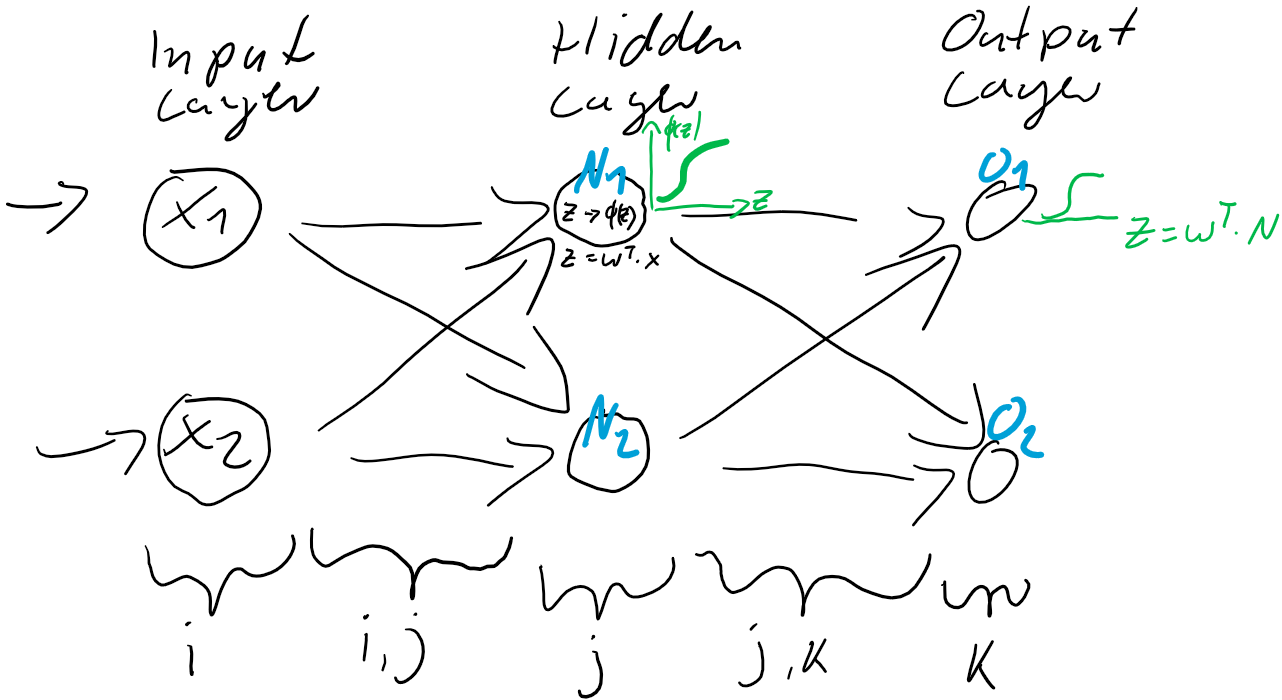 Input
Layer
Hidden
Layer
Output
Layer
X1
N1
z → φ(z)
z = w^T · x
φ(z)
z
O1
z = w^T · N
X2
N2
O2
i
i, j
j
j, k
k